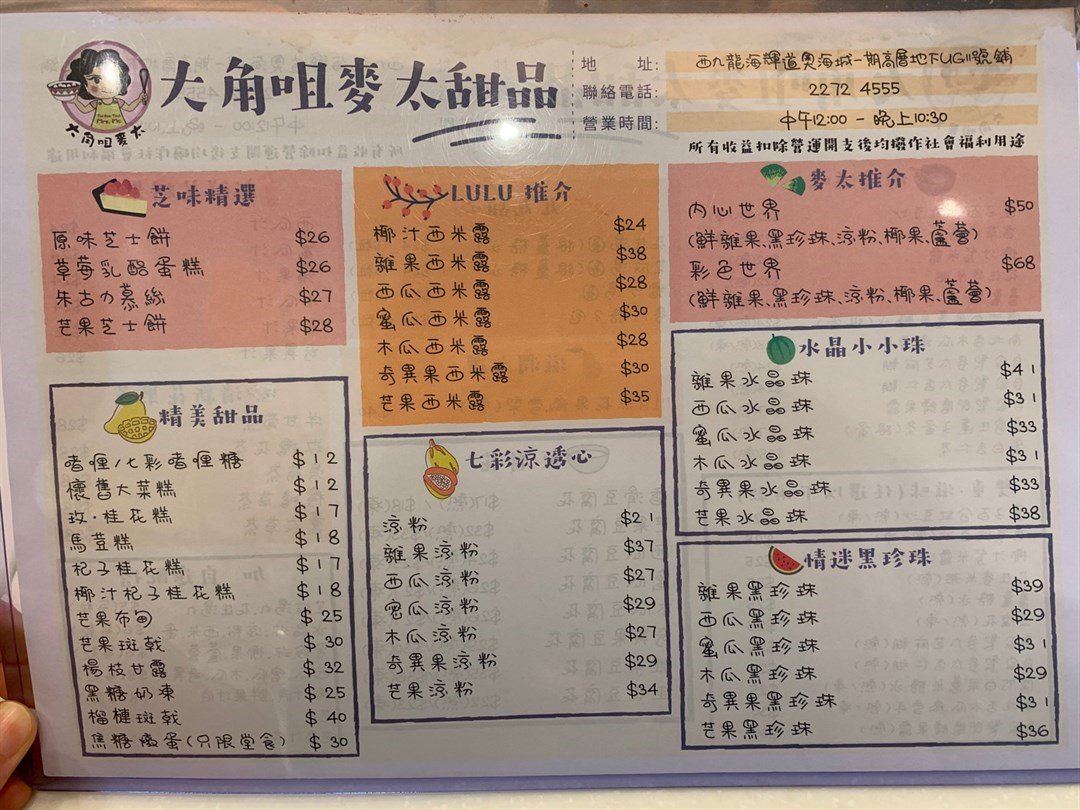 大角咀麥太
大角咀麥太甜品
地 址: 西九龍海輝道奧海城一期高層地FUG11號舖
聯絡電話: 2272 4555
營業時間: 中午12:00 - 晚上10:30
所有收益扣除營運開支後均撥作社會福利用途
芝味精選
原味芝士餅 $26
草莓乳酪蛋糕 $26
朱古力慕絲 $27
芒果芝士餅 $28
精美甜品
啫喱/七彩啫喱糖 $12
懷舊大菜糕 $12
玫·桂花糕 $17
馬荳糕 $18
杞子桂花糕 $17
椰汁杞子桂花糕 $18
芒果布甸 $25
芒果班戟 $30
楊枝甘露 $32
黑糖奶凍 $25
榴槤班戟 $40
焦糖燉蛋(只限堂食) $30
LULU 推介
椰汁西米露 $24
雜果西米露 $38
西瓜西米露 $28
蜜瓜西米露 $30
木瓜西米露 $28
奇異果西米露 $30
芒果西米露 $35
七彩涼透心
涼粉 $21
雜果涼粉 $37
西瓜涼粉 $27
蜜瓜涼粉 $29
木瓜涼粉 $27
奇異果涼粉 $29
芒果涼粉 $34
麥太推介
內心世界 $50
(鮮雜果、黑珍珠、涼粉、椰果、蘆薈)
彩色世界 $68
(鮮雜果、黑珍珠、涼粉、椰果、蘆薈)
水晶小小珠
雜果水晶珠 $41
西瓜水晶珠 $31
蜜瓜水晶珠 $33
木瓜水晶珠 $31
奇異果水晶珠 $33
芒果水晶珠 $38
情迷黑珍珠
雜果黑珍珠 $39
西瓜黑珍珠 $29
蜜瓜黑珍珠 $31
木瓜黑珍珠 $29
奇異果黑珍珠 $31
芒果黑珍珠 $36